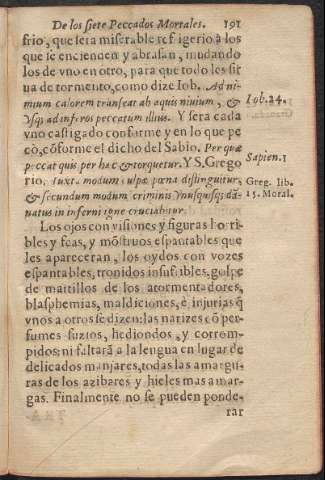 De los siete Peccados Mortales. 191
frio, que sera miserable refrigerio à los
que se encienden y abrasan, mudando
los de vno en otro, para que todo les sir
ua de tormento, como dize Iob. Ad ni-
mium calorem transeat ab aquis niuium, &
vsq; ad inferos peccatum illius. Y sera cada
Iob. 24.
vno castigado conforme y en lo que pe
cò, cõforme el dicho del Sabio. Per quæ
peccat quis per hæc & torquetur. Y S. Grego
Sapien. 1
rio, Iuxta modum culpæ pœna distinguitur,
& secundum modum criminis vnusquisq; dã
natus in inferni igne cruciabitur.
Greg. lib.
15. Moral.
Los ojos con visiones y figuras horri-
bles y feas, y mõstruos espantables que
les apareceran, los oydos con vozes
espantables, tronidos insufribles, golpe
de martillos de los atormentadores,
blasphemias, maldiciones, è injurias q̃
vnos a otros se dizen: las narizes cõ per-
fumes suzios, hediondos, y corrom-
pidos: ni faltarà a la lengua en lugar de
delicados manjares, todas las amargu-
ras de los azibares y hieles mas amar-
gas. Finalmente no se pueden ponde-
rar